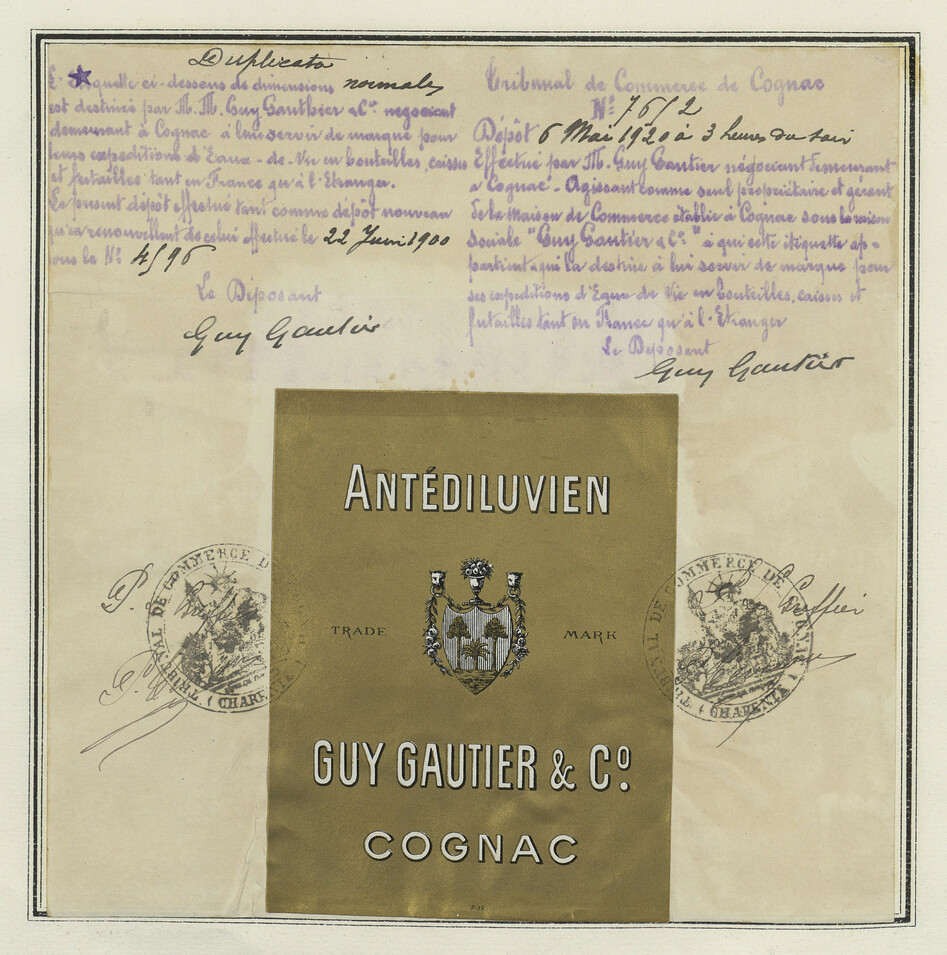 Duplicata
L'étiquette ci-dessous de dimensions normales
est destinée par M.M. Guy Gauthier & Cie négociant
demeurant à Cognac à leur servir de marque pour
leurs expéditions d'Eaux-de-Vie en bouteilles, caisses
et futailles tant en France qu'à l'Etranger.
Le présent dépôt effectué tant comme dépôt nouveau
qu'en renouvellant de celui effectué le 22 Juin 1900
sous le No 4596
Le Déposant
Guy Gautier
Tribunal de Commerce de Cognac
No 7652
Dépôt 6 Mai 1920 à 3 heures du soir
Effectué par M. Guy Gautier négociant demeurant
à Cognac - Agissant comme seul propriétaire et gérant
de la Maison de Commerce établie à Cognac sous la raison
sociale "Guy Gautier & Co" à qui cette étiquette ap-
partient & qui la destine à lui servir de marque pour
ses expéditions d'Eaux-de Vie en bouteilles, caisses et
futailles tant en France qu'à l'Etranger
Le Déposant
Guy Gautier
ANTÉDILUVIEN
TRADE MARK
GUY GAUTIER & Co.
COGNAC
TRIBUNAL DE COMMERCE D
(CHARENTE
TRIBUNAL DE COMMERCE DE COGNAC
(CHARENTE)